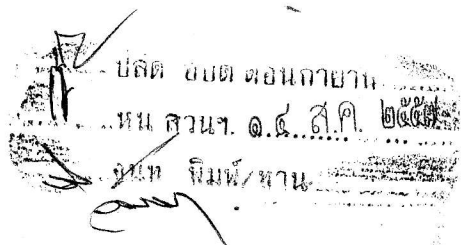 ปลัด อบต ดอนกายาน
หน ส่วนฯ. ๑๔ ส.ค. ๒๕๕๗
จนท พิมพ์/ทาน